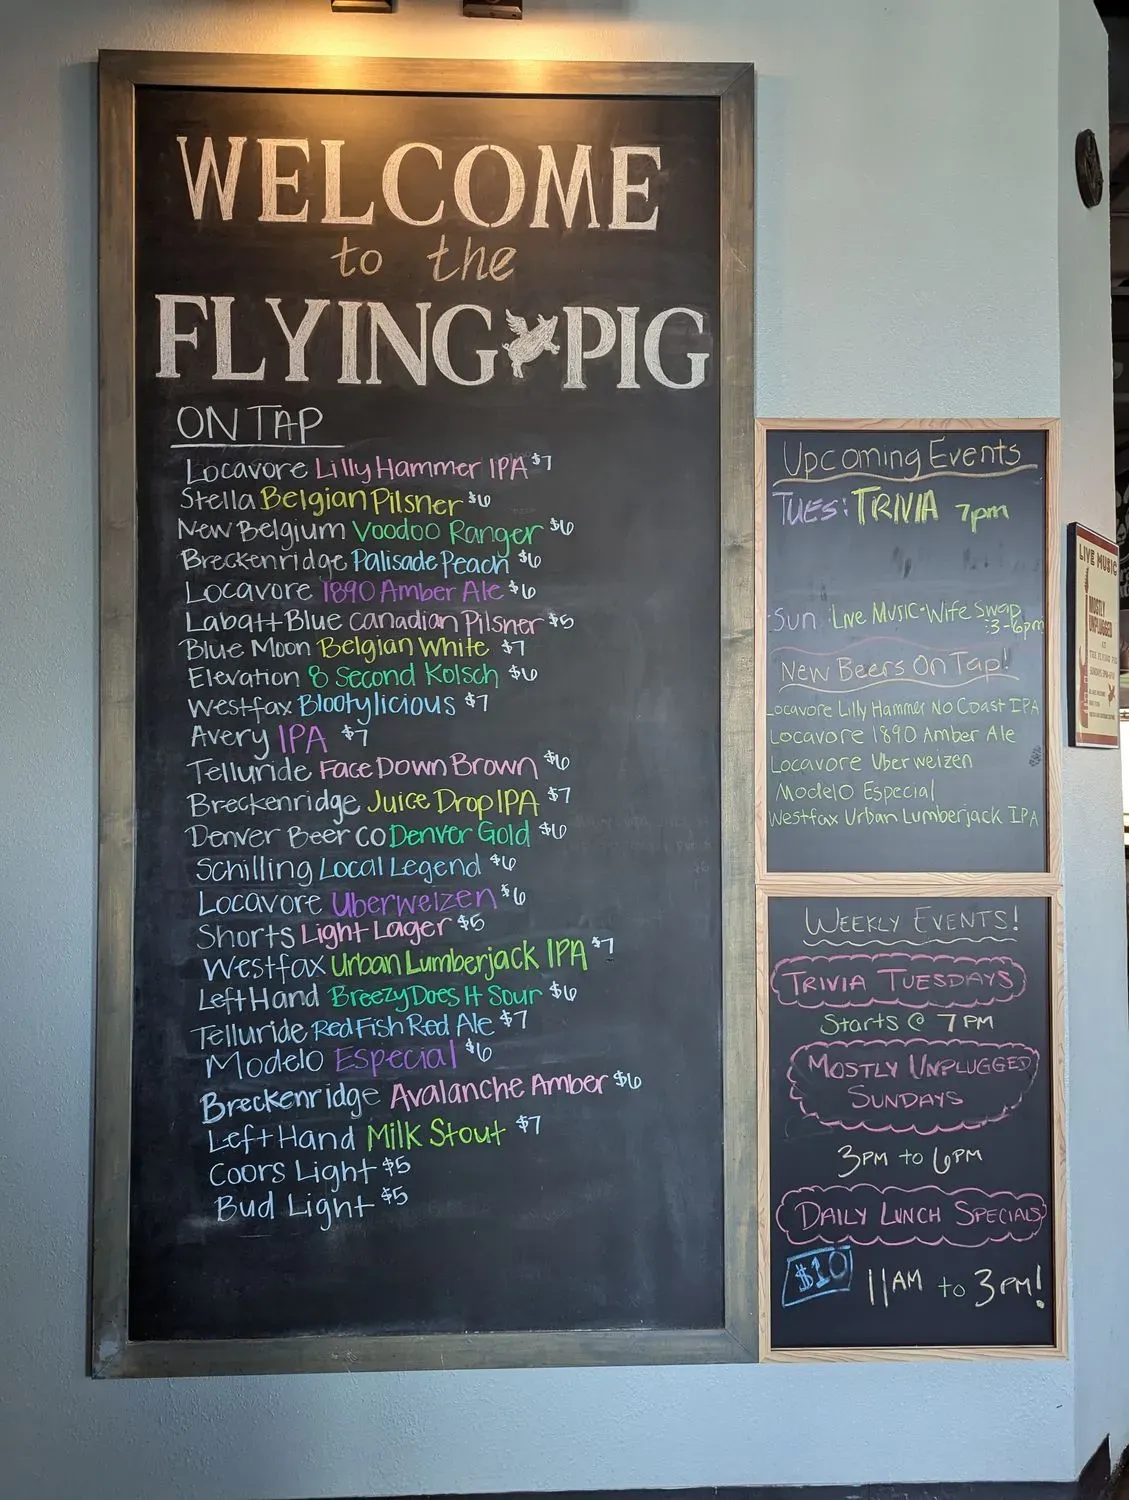 WELCOME
to the
FLYING PIG
ON TAP
Locavore Lilly Hammer IPA $7
Stella Belgian Pilsner $6
New Belgium Voodoo Ranger $6
Breckenridge Palisade Peach $6
Locavore 1890 Amber Ale $6
Labatt Blue Canadian Pilsner $5
Blue Moon Belgian White $7
Elevation 8 Second Kolsch $6
Westfax Blootylicious $7
Avery IPA $7
Telluride Face Down Brown $6
Breckenridge Juice Drop IPA $7
Denver Beer Co Denver Gold $6
Schilling Local Legend $6
Locavore Uberweizen $6
Shorts Light Lager $5
Westfax Urban Lumberjack IPA $7
Left Hand Breezy Does It Sour $6
Telluride Red Fish Red Ale $7
Modelo Especial $6
Breckenridge Avalanche Amber $6
Left Hand Milk Stout $7
Coors Light $5
Bud Light $5
Upcoming Events
TUES: TRIVIA 7pm
Sun Live Music-Wife Swap
:3-6pm
New Beers On Tap!
Locavore Lilly Hammer No Coast IPA
Locavore 1890 Amber Ale
Locavore Uberweizen
Modelo Especial
Westfax Urban Lumberjack IPA
WEEKLY EVENTS!
TRIVIA TUESDAYS
Starts @ 7PM
MOSTLY UNPLUGGED
SUNDAYS
3PM to 6PM
DAILY LUNCH SPECIALS
$10 11AM to 3PM!
LIVE MUSIC
MOSTLY
UNPLUGGED
AT
THE FLYING PIG